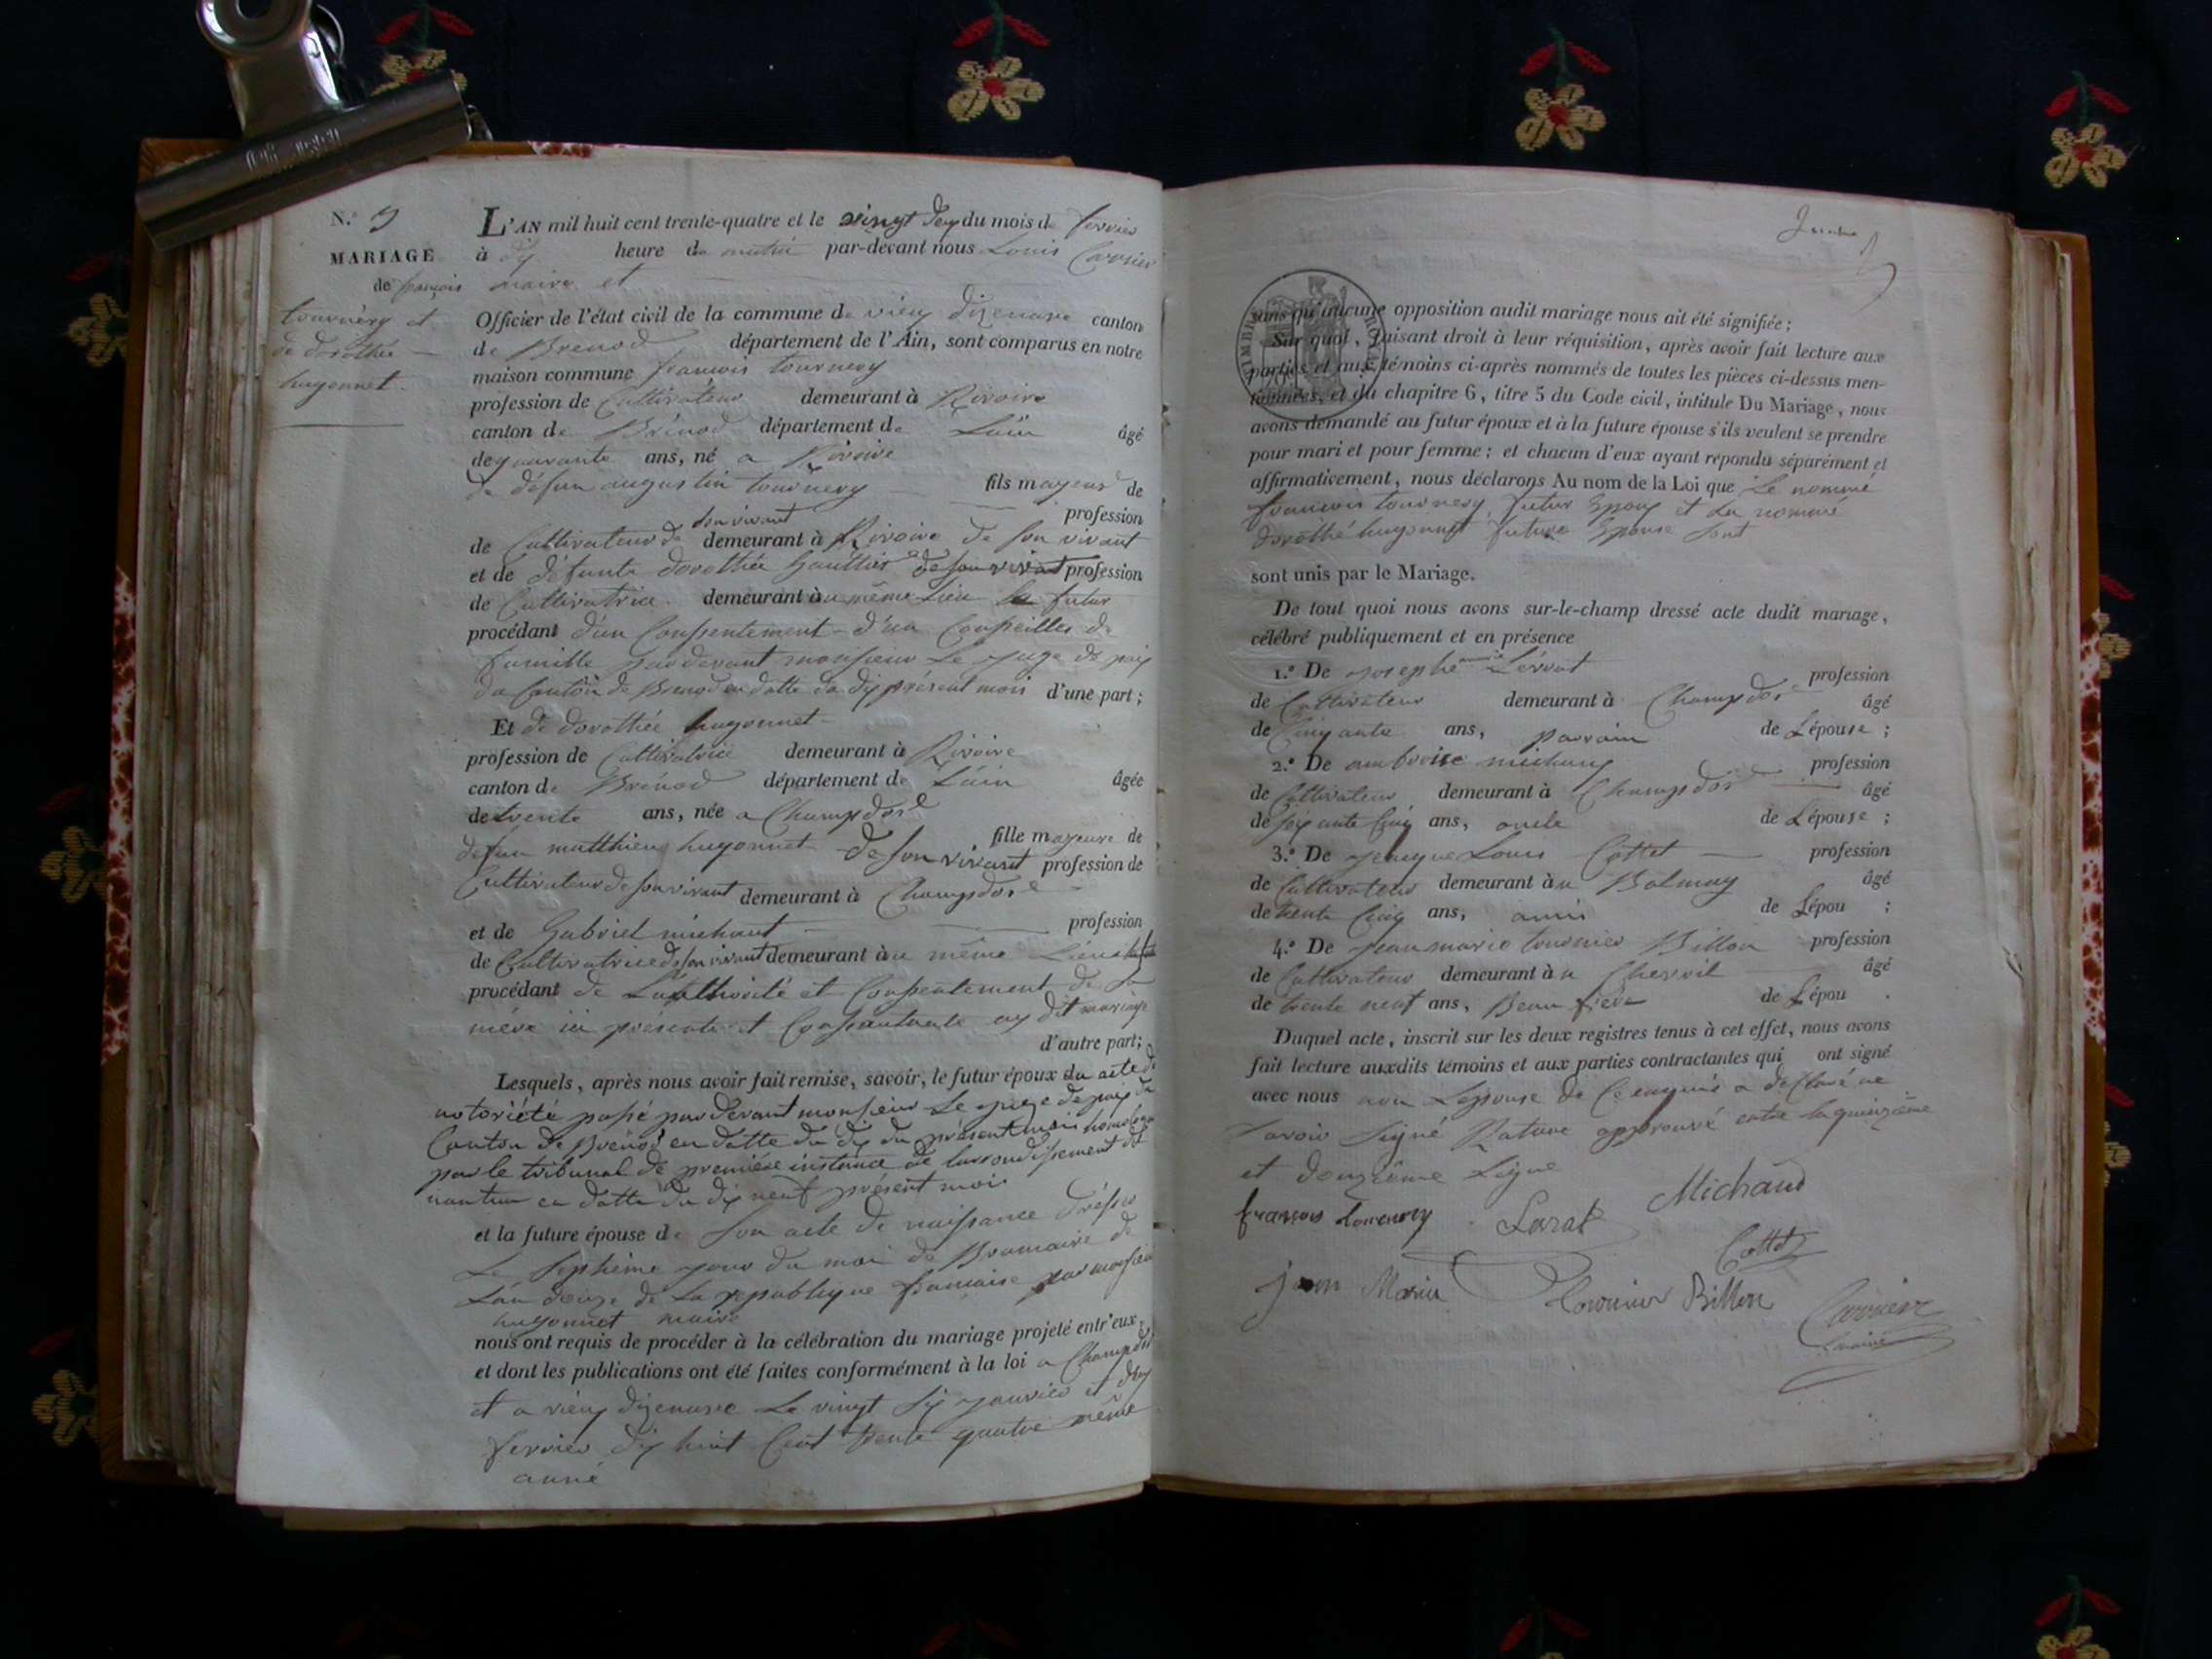 N.º
MARIAGE
de françois
tournery et
de dorothée
hugonnet.
L'AN mil huit cent trente-quatre et le vingt deux du mois de fevrier
à dix heure de matin par-devant nous Louis Carrier
maire et
Officier de l'état civil de la commune de vieux dizenave canton
de Brenod département de l'Ain, sont comparus en notre
maison commune françois tournery
profession de Cultivateur demeurant à Rivoire
canton de Brénod département de Lain âgé
de quarante ans, né a Rivoire
de défun augustin tournery fils mayeur de
son vivant profession
de Cultivateur de demeurant à Rivoire de son vivant
et de défunte dorothée Gauthier de son vivant profession
de Cultivatrice demeurant au même Lieu le futur
procédant d'un Consentement d'un Conseilles de
famille pardevant monsieur Le juge de paix
du Canton de Brenod en datte du dix présent mois d'une part ;
Et de dorothée hugonnet
profession de Cultivatrice demeurant à Rivoire
canton de Brénod département de Lain âgée
de trente ans, née a Champdor
fille mayeure de
défun matthieu hugonnet de son vivant profession de
Cultivateur de son vivant demeurant à Champdor
et de Gabriel michaut profession
de Cultivatrice de son vivant demeurant au même Lieu
procédant de Lauthorité et Consentement de sa
mère ici présente et Consentante au dit mariage
d'autre part;
Lesquels, après nous avoir fait remise, savoir, le futur époux du acte de
notoriété passé pardevant monsieur Le juge de paix du
Canton de Brénod en datte du dix du présent mois
par le tribunal de première instance de larrondissement de
nantua en datte du dix neuf présent mois
et la future épouse de son acte de naissance dréssé
Le septième jour du moi de Brumaire de
Lan douze de La republique française par monsieur
hugonnet maire
nous ont requis de procéder à la célébration du mariage projeté entr'eux;
et dont les publications ont été faites conformément à la loi a Champdor
et a vieux dizenave Le vingt six janvier et deux
fevrier dix huit Cent trente quatre même
anné
sans qu'aucune opposition audit mariage nous ait été signifiée ;
Sur quoi, faisant droit à leur réquisition, après avoir fait lecture aux
parties et aux témoins ci-après nommés de toutes les pièces ci-dessus men-
tionnées, et du chapitre 6, titre 5 du Code civil, intitule Du Mariage, nous
avons demandé au futur époux et à la future épouse s'ils veulent se prendre
pour mari et pour femme ; et chacun d'eux ayant répondu séparément et
affirmativement, nous déclarons Au nom de la Loi que Le nommé
françois tournery, futur Epoux et La nommé
dorothé hugonnet future Epouse sont
sont unis par le Mariage.
De tout quoi nous avons sur-le-champ dressé acte dudit mariage,
célébré publiquement et en présence
1.º De josephe profession
de Cultivateur demeurant à Champdor âgé
de Cinquante ans, parrain de Lépouse ;
2.º De ambroise michaux profession
de Cultivateur demeurant à Champdor âgé
de soixante Cinq ans, oncle de Lépouse ;
3.º De Louis Cottet profession
de Cultivateur demeurant au Balmay âgé
de trente Cinq ans, amis de Lépou ;
4.º De jean marie tournier Billon profession
de Cultivateur demeurant à Chevril âgé
de trente neuf ans, Beau frère de Lépou .
Duquel acte, inscrit sur les deux registres tenus à cet effet, nous avons
fait lecture auxdits témoins et aux parties contractantes qui ont signé
avec nous non Lepouse de Ce enquis a déclaré ne
savoir signé Rature approuvé entre la quinzème
et douzième Ligne
françois tournery Lorat Michaud
Cottet
jean Marie tournier Billon Carrier
maire